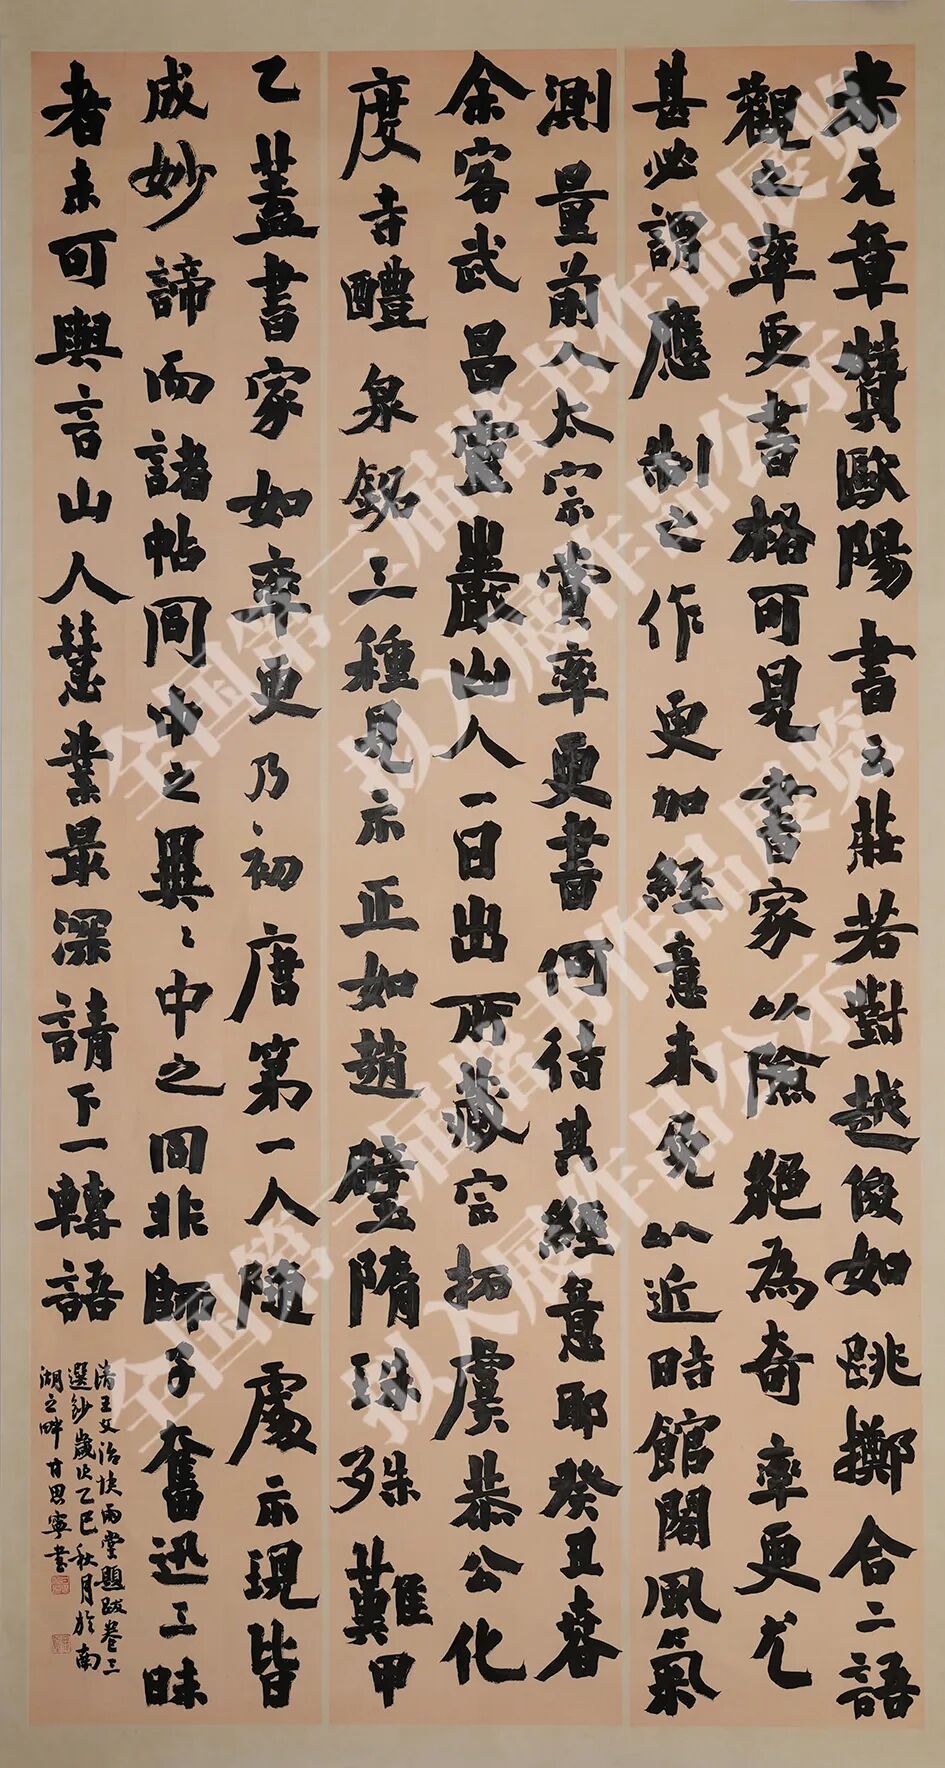 米元章贊歐陽書云莊若對越俊如跳擲合二語
觀之率更書格可見書家以險絕為奇率更尤
甚必謂應制之作更加經意未免以近時館閣風氣
測量前人太宗賞率更書何待其經意耶癸丑春
余客武昌靈巖山人一日出所藏宗拓虞恭公化
度寺醴泉銘三種見示正如趙璧隋珠殊難甲
乙蓋書家如率更乃初唐第一人隨處示現皆
成妙諦而諸帖同中之異〻中之同非師子奮迅三昧
者未可與言山人慧業最深請下一轉語
清王文治快雨堂題跋卷三
選鈔歲次乙巳秋月於南
湖之畔甘思寧書
全国第三届楷书作品展览
拟入展作品公示
全国第三届楷书作品展览
拟入展作品公示